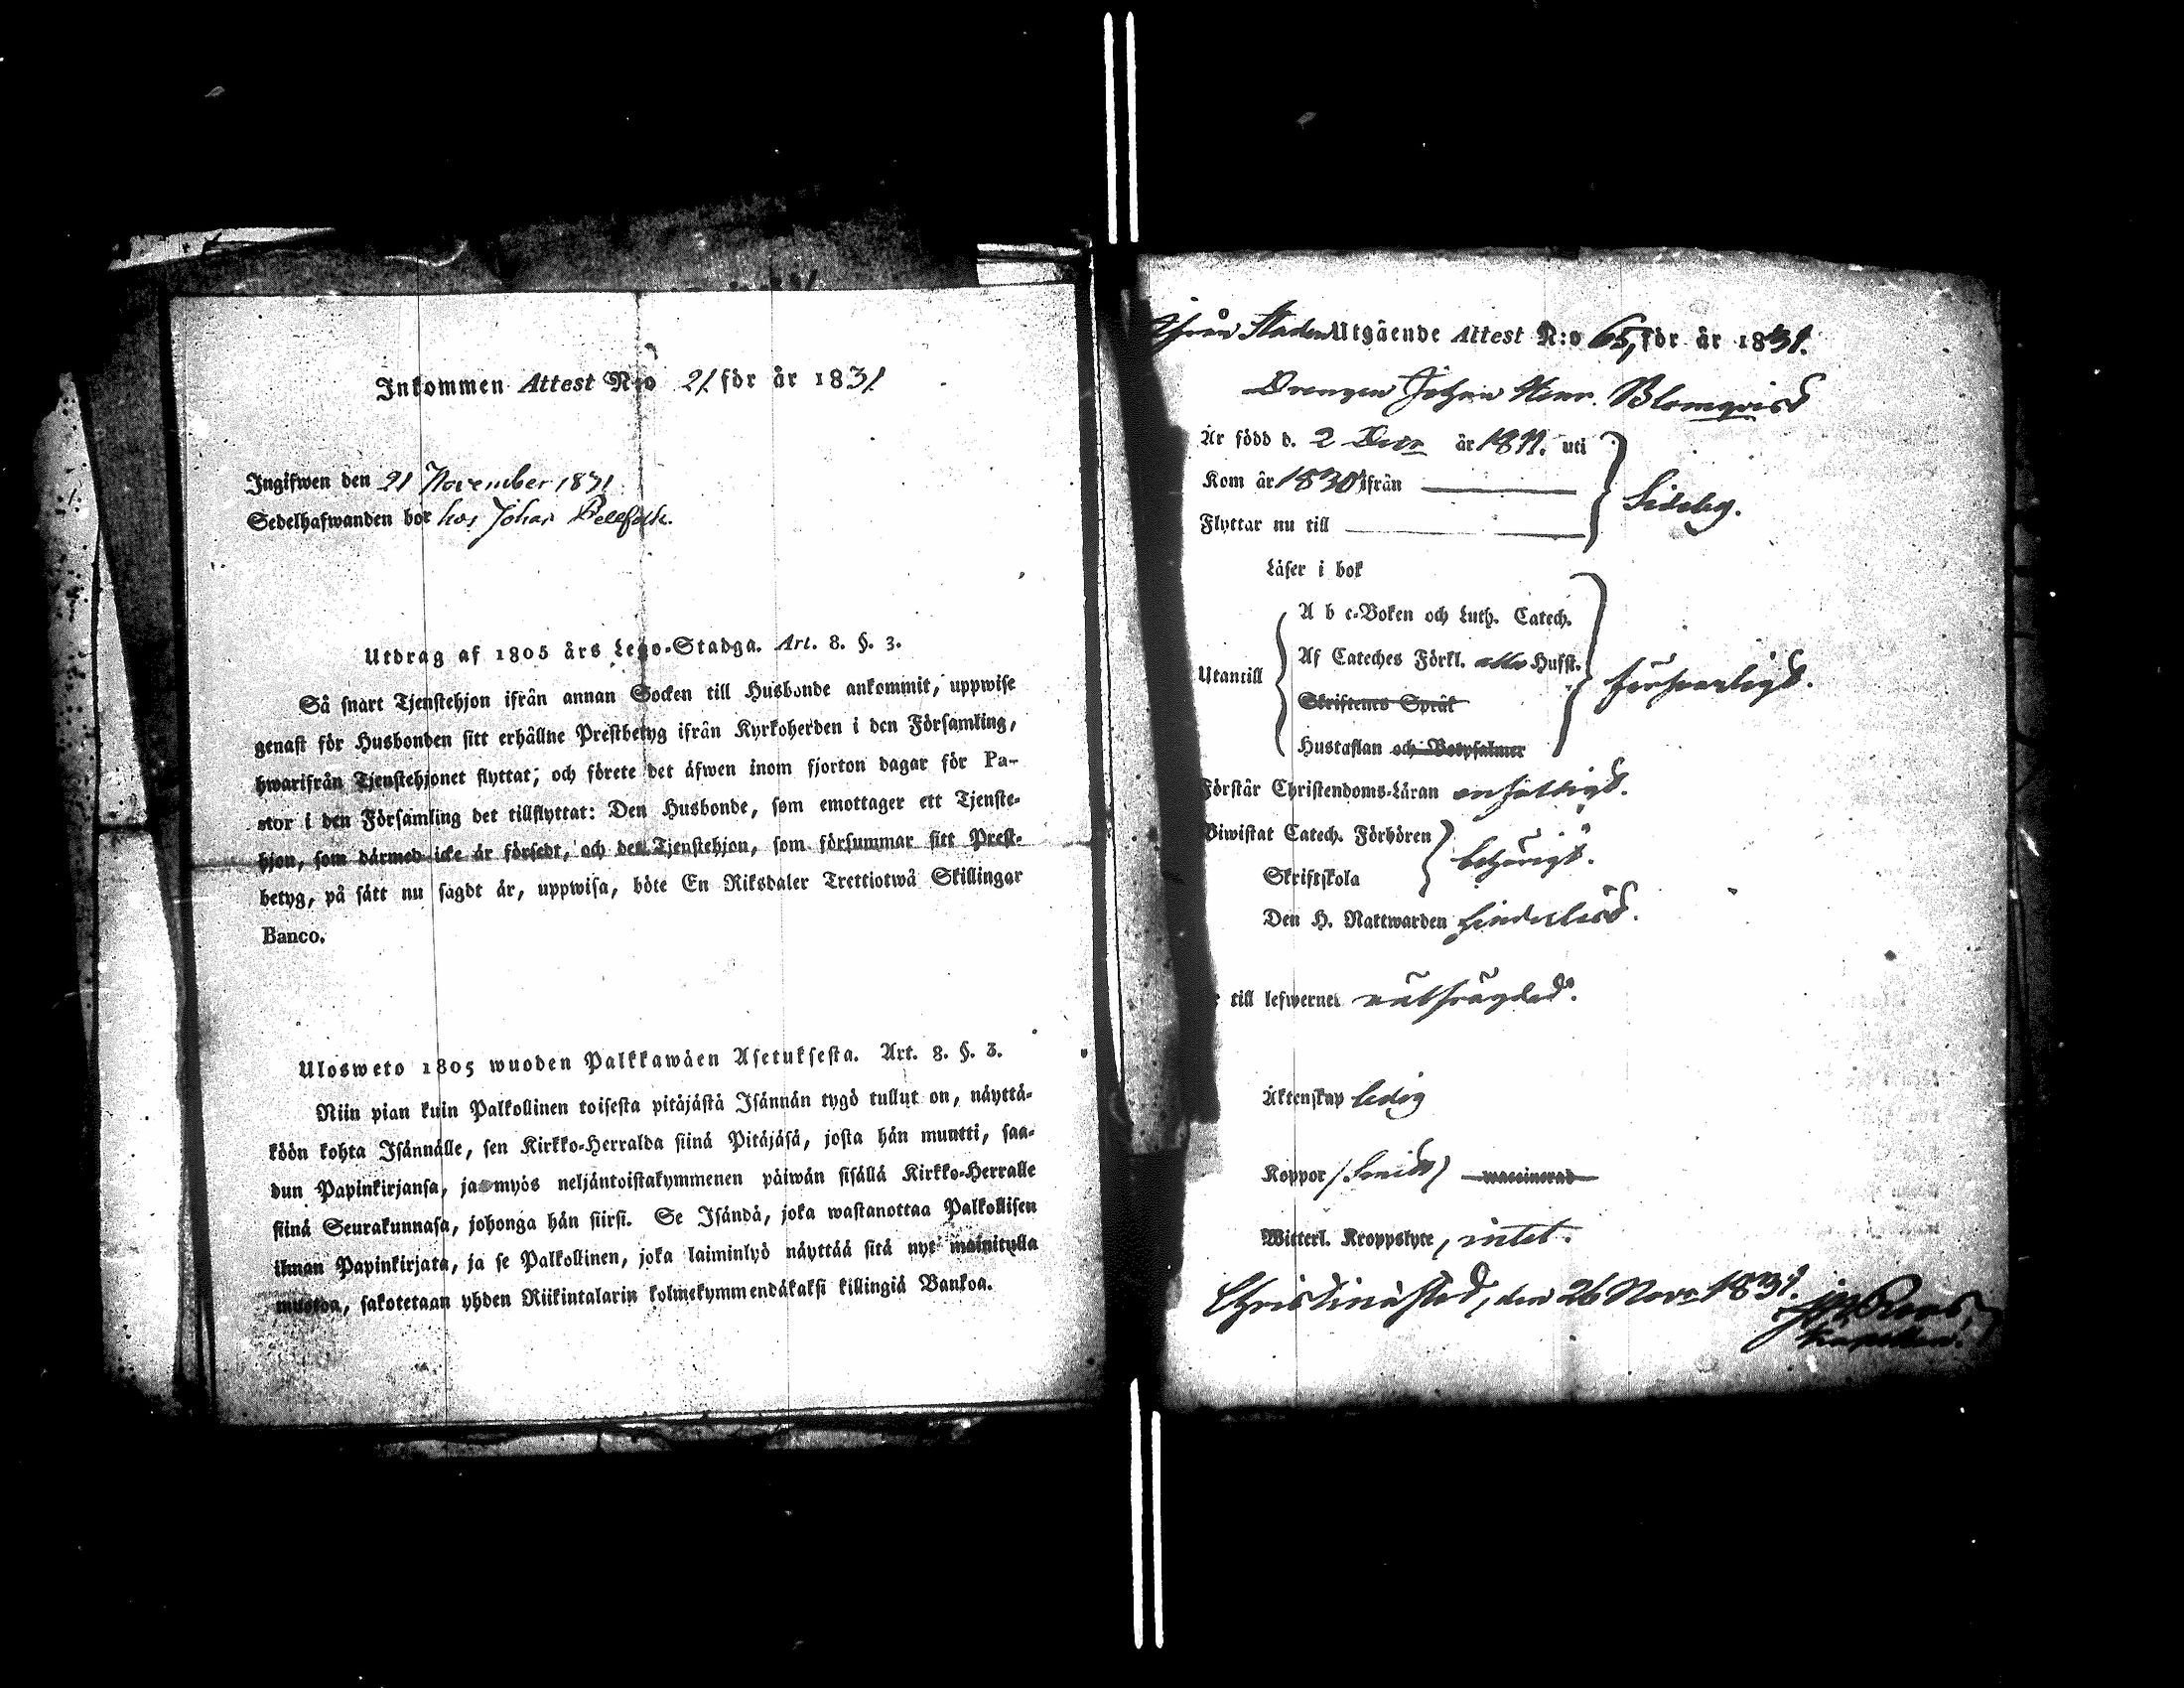 Inkommen Attest N:o 21 för år 1831
Ingifwen den 21 November 1831
Sedelhafwanden bor hos Johan
Utdrag af 1805 års Lego-Stadga. Art. 8. §. 3.
Så snart Tjenstehjon ifrån annan Socken till Husbonde ankommit, uppwise
genast för Husbonden sitt erhållne Prestbetyg ifrån Kyrkoherden i den Församling,
hwarifrån Tjenstehjonet flyttat; och förete det äfwen inom fjorton dagar för Pa-
stor i den Församling det tillflyttat: Den Husbonde, som emottager ett Tjenste-
hjon, som därmed icke är försedt, och det Tjenstehjon, som försummar sitt Prest-
betyg, på sätt nu sagdt är, uppwisa, böte En Riksdaler Trettiotwå Skillingar
Banco.
Ulosweto 1805 wuoden Palkkawäen Asetuksesta. Art. 8. §. 3.
Niin pian kuin Palkollinen toisesta pitäjästä Isännän tygö tullut on, näyttä-
köön kohta Isännälle, sen Kirkko-Herralda siinä Pitäjäsä, josta hän muutti, saa-
dun Papinkirjansa, ja myös neljäntoistakymmenen päiwän sisällä Kirkko-Herralle
siinä Seurakunnasa, johonga hän siirsi. Se Isändä, joka wastanottaa Palkollisen
ilman Papinkirjata, ja se Palkollinen, joka laiminlyö näyttää sitä nyt mainitulla
muotoa, sakotetaan yhden Riikintalarin kolmekymmendäkaksi killingiä Bankoa.
ifrån Staden Utgående Attest N:o 65, för år 1831.
Drengen Johan Henr. Blomqvist
Är född d. 2 Decr år 1811. uti
Kom år 1830 ifrån
Sideby.
Flyttar nu till
Läser i bok
A b c-Boken och Luth. Catech.
Utantill
Af Cateches Förkl. alla Hufst.
försvarligt.
Skriftenes Språk
Hustaflan och Botpsalmer
Förstår Christendoms-Läran enfaldigt.
Biwistat Catech. Förhören
behörigt.
Skriftskola
Den H. Nattwarden hinderlöst.
till lefwernet
Äktenskap ledig
Koppor waccinerad
Witterl. Kroppslyte, intet.
Christinæstad, den 26 Novr 1831.